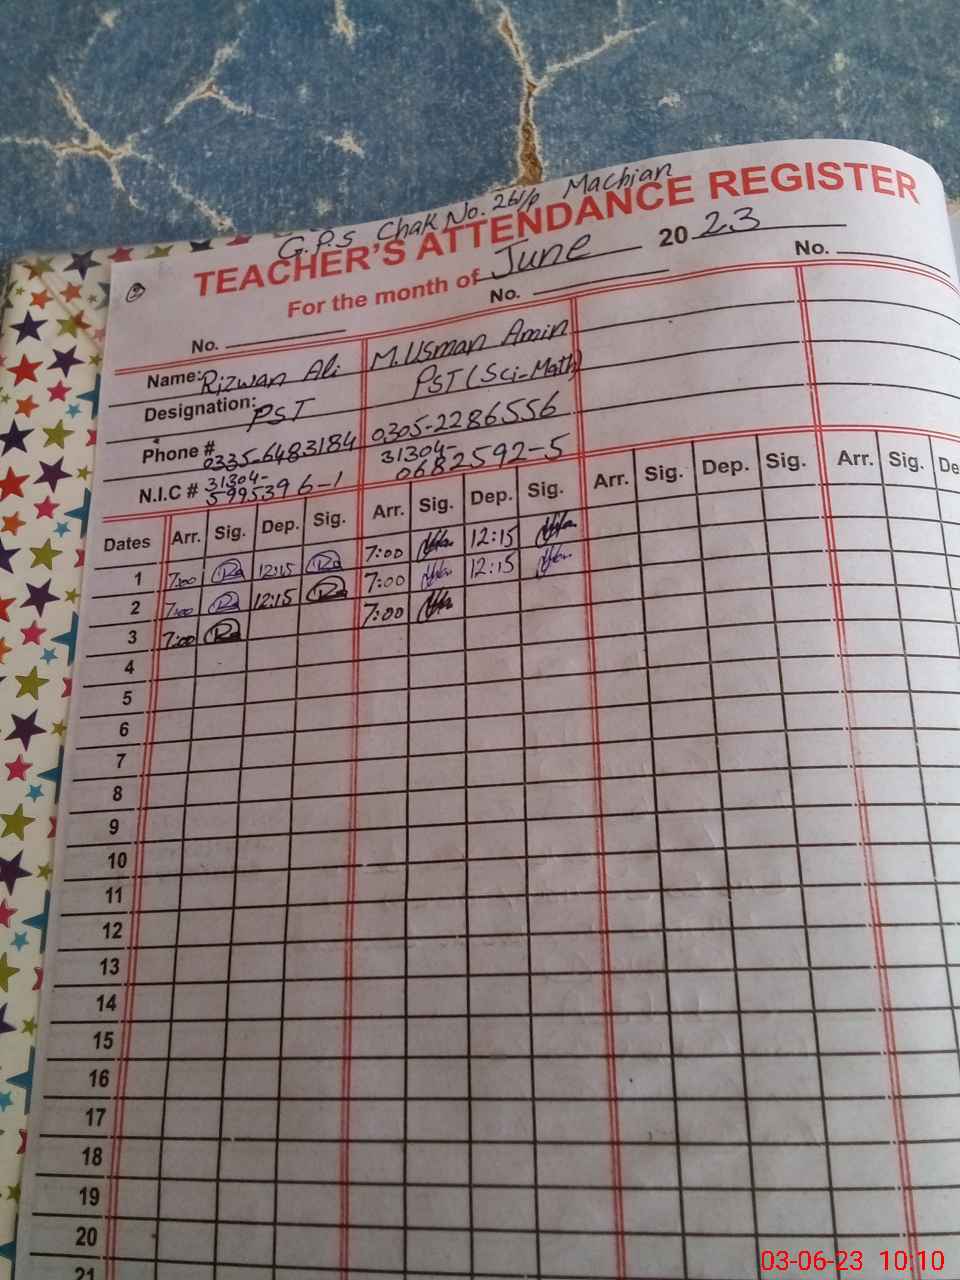 G.P.S Chak No. 261/P Machian
TEACHER'S ATTENDANCE REGISTER
For the month of June 2023
No. No. No.
Name: Rizwan Ali M. Usman Amin
Designation: PST PST (Sci-Math)
Phone # 0335-6483184 0305-2286556
N.I.C # 31304-5995396-1 31304-0682592-5
Dates Arr. Sig. Dep. Sig. Arr. Sig. Dep. Sig. Arr. Sig. Dep. Sig. Arr. Sig. De
1 7:00 12:15 7:00 12:15
2 7:00 12:15 7:00 12:15
3 7:00 7:00
4
5
6
7
8
9
10
11
12
13
14
15
16
17
18
19
20
21
03-06-23 10:10